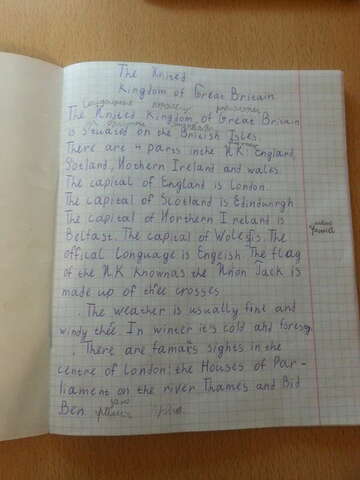 The Knited
Kingdom of Great Britain
The Knited Kingdom of Great Britain
is situated on the British Isles.
There are 4 parts in the UK: England,
Sotland, Nothern Ireland and wales.
The capital of England is London.
The capital of Scotland is Edinburgh.
The capital of Northern Ireland is
Belfast. The capital of Woleſis. The
offical Language is Engeish. The flag
of the UK Knownas the Union Jack is
made up of thee crosses
. The weather is usually fine and
windy thee. In winter it's cold and foresty.
. There are famars sights in the
centre of London: the Houses of Par-
liament on the river Thames and Bid
Ben